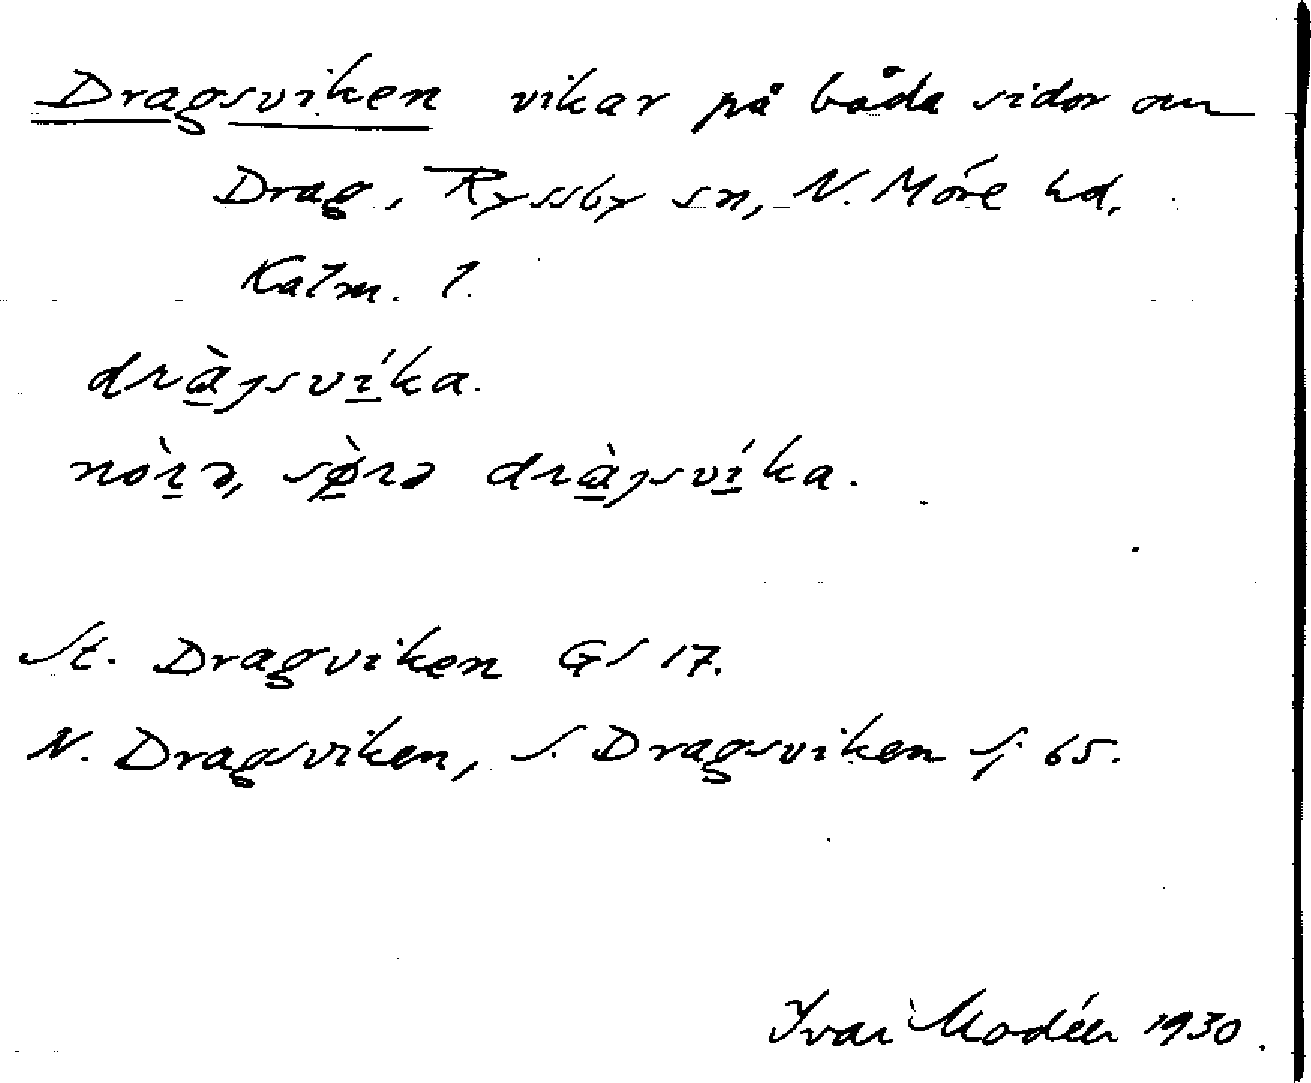 Dragsviken vikar på båda sidor om
Drag, Ryssby sn, N. Möre hd.
Kalm. l.
dràgsvíka.
nòrə, sø̀rə dràgsvíka.
St. Dragviken GS 17.
N. Dragsviken, S. Dragsviken Sj 65.
Ivar Modéer 1930.